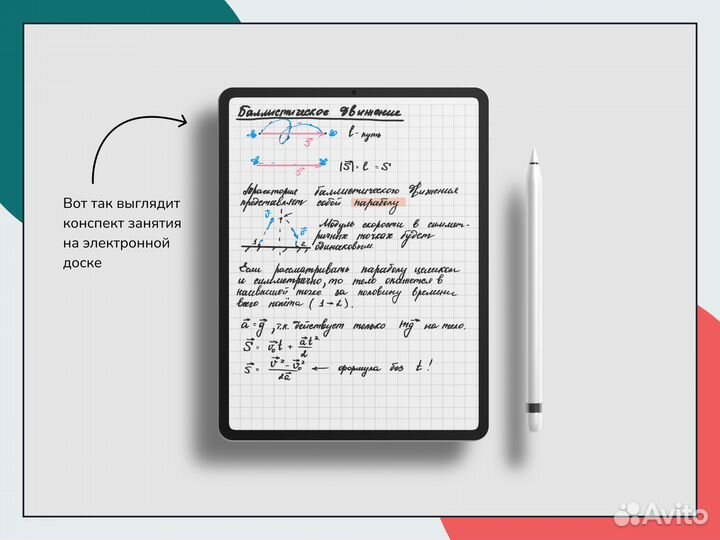 Вот так выглядит
конспект занятия
на электронной
доске
Баллистическое движение
l - путь
S
|S⃗| = l = S
S⃗
Траектория баллистического движения
представляет собой параболу
Модуль скорости в симмет-
ричных точках будет
одинаковым.
v⃗
v⃗
1
2
Если рассматривать параболу целиком
и симметрично, то тело окажется в
наивысшей точке за половину времени
всего полёта (1→2).
a⃗ = g⃗, т.к. действует только mg⃗ на тело.
S⃗ = v⃗₀t + a⃗t²/2
S⃗ = v⃗² - v⃗₀²/2a⃗ ← формула без t!
Avito